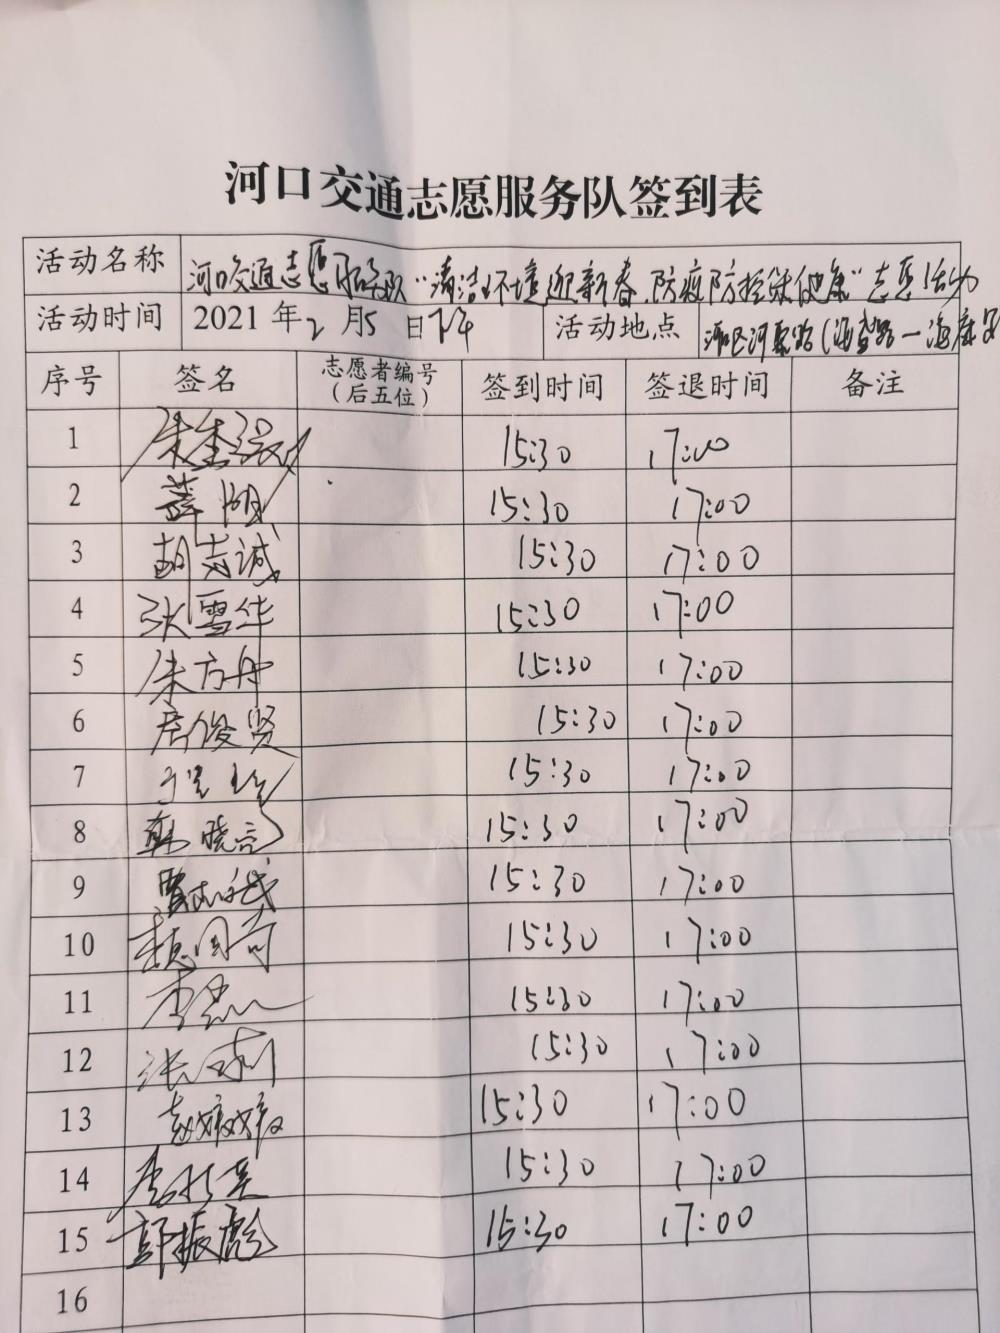 河口交通志愿服务队签到表
活动名称 河口交通志愿服务队“清洁环境迎新春，防疫防控保健康”志愿活动
活动时间 2021年2月5日下午 活动地点 河口区河聚路（海盛路一海康路
序号 签名 志愿者编号（后五位） 签到时间 签退时间 备注
1 15:30 17:00
2 薛明 15:30 17:00
3 胡志诚 15:30 17:00
4 张雪华 15:30 17:00
5 朱方舟 15:30 17:00
6 俊贤 15:30 17:00
7 15:30 17:00
8 韩晓亮 15:30 17:00
9 15:30 17:00
10 15:30 17:00
11 15:30 17:00
12 张 15:30 17:00
13 赵嫩嫩 15:30 17:00
14 15:30 17:00
15 郭振彪 15:30 17:00
16